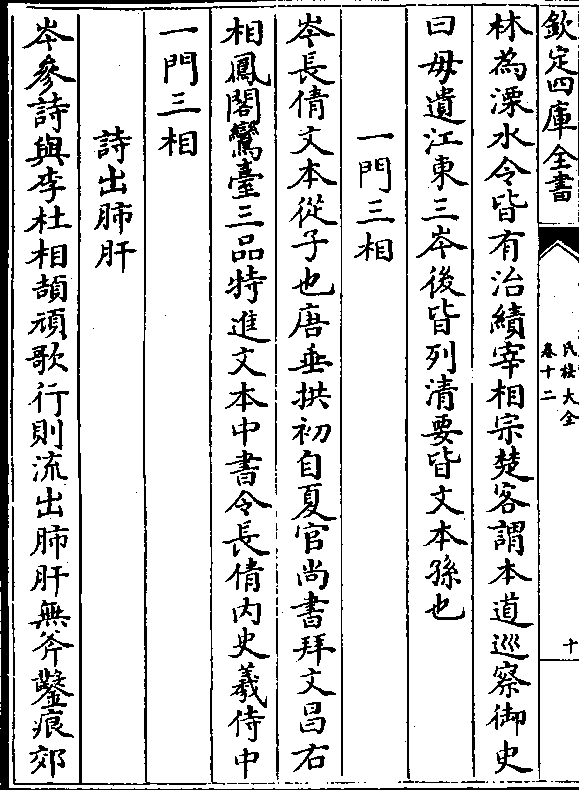 欽定四庫全書
氏族大全
卷十二
十
林為溧水令皆有治績宰相宗楚客謂本道巡察御史
曰毋遺江東三岑後皆列清要皆文本孫也
一門三相
岑長倩文本從子也唐垂拱初自夏官尚書拜文昌右
相鳳閣鸞臺三品特進文本中書令長倩内史羲侍中
一門三相
詩出肺肝
岑參詩與李杜相頡頏歌行則流出肺肝無斧鑿痕郊